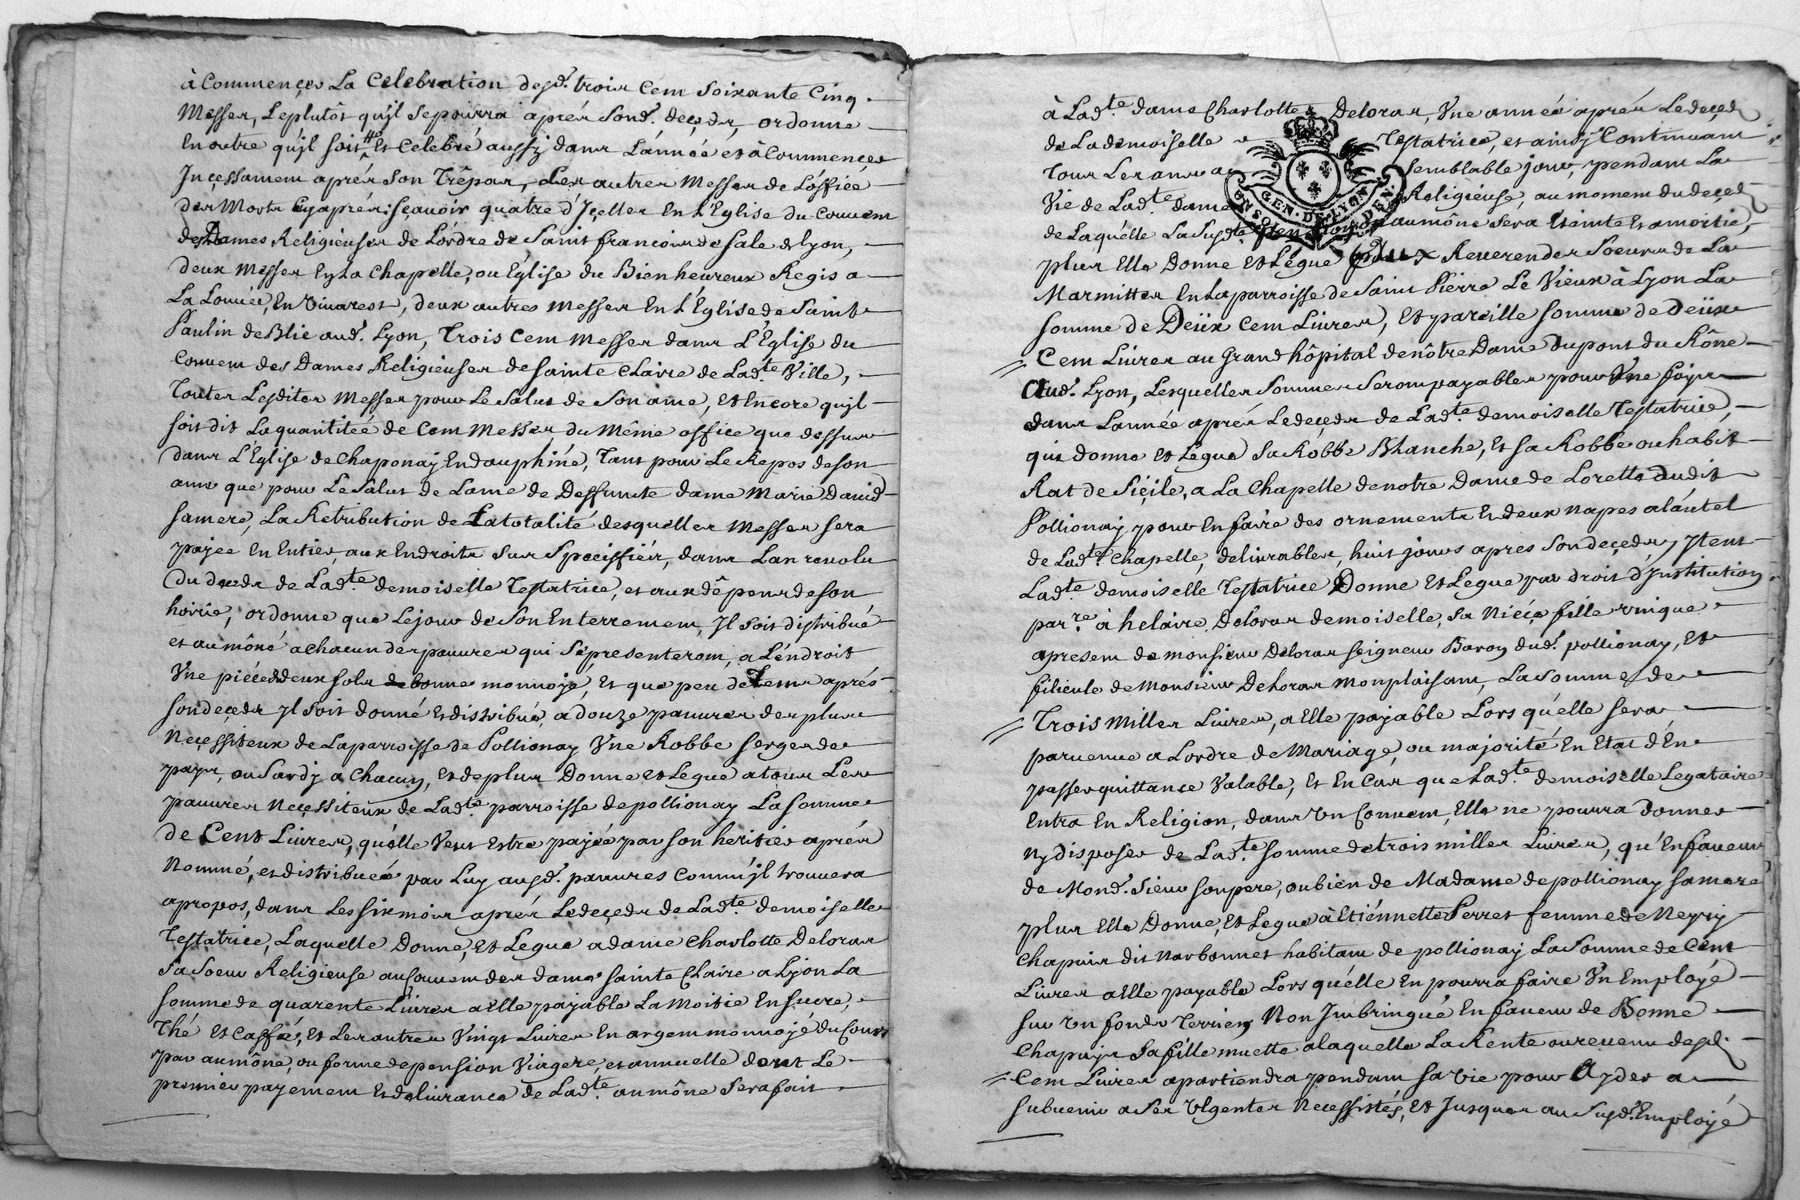 à Commencer La Celebration desd.t trois Cent Soixante Cinq
Messes, Leplutôt qu'jl sepourra aprés Sond.t deçeds, ordonne
En outre qu'jl soit Et Celebré aussy dans L'année et à Commencer
Jnçessament aprés Son Trêpas, Les autres Messes de L'office
des Morts Cyaprés: sçavoir quatre d'Jçelles En L'Eglise du Couvent
des Dames Religieuses de L'ordre de Saint françois de Sale de lyon,
deux Messes En La Chapelle, ou Eglise du Bienheureux Regis a
La Louvée, En Vivarest, deux autres Messes En L'Eglise de Saint
Paulin de Blie aud.t Lyon, Trois Cent Messes dans L'Eglise du
Couvent des Dames Religieuses de sainte Claire de Lad.te Ville,
Toutes Lesdites Messes pour Le Salut de Son ame, Et Encore qu'jl
soit dit La quantiteé de Cent Messes du Même office que dessus
dans L'Eglise de Chaponay En dauphiné, Tant pour Le Repos de son
ame que pour Le Salut de Lame de Deffuncte dame Marie David
samere, La Retribution de La totalité desquelles Messes sera
payee En Entier aux Endroits sus Speciffiés, dans Lan revolu
du deceds de Lad.te demoiselle Testatrice, et aux dêpens de son
hoirie, ordonne que Lejour de Son Enterrement, Jl soit distribué
et aumôné a chacun des pauvres qui Sepresenteront, a L'éndroit
Vne piéce de deux sols de bonne monnoye, Et que peu de tems aprés
son deçeds Jl soit donné Et distribué, a douze pauvres des plus
Neçessiteux de Laparroisse de Pollionay Vne Robbe serge de
pays, ou Sardy a Chacun, et de plus Donne et Legue a tous Les
pauvres Neçessiteux de Lad.te parroisse de pollionay La somme
de Cent Livres, qu'élle Veut Estre payée par son heritier aprés
Nommé, et distribueé par Luy ausd.t pauvres Comm'jl trouvera
apropos, dans Les six mois aprés Ledeçeds de Lad.te demoiselle
Testatrice, Laquelle Donne, Et Legue a dame Charlotte Deloras
Sa Soeur Religieuse au Couvent des dames Sainte Claire a Lyon La
somme de quarente Livres a Elle payable La Moitie En Sucre,
Thé Et Caffée, Et Les autres Vingt Livres En argent monnoyé du Cours
par aumône, ou forme de pension Viagere, et annuelle dont Le
premier payement Et delivrance de Lad.te aumône Sera fait
à Lad.te dame Charlotte Deloras, Vne année aprés Ledeçed
de La demoiselle Testatrice, et ainsy Continuant
Tous Les ans a semblable jour, pendant La
Vie de Lad.te dame Religieuse, au moment du deçed
de Laquélle La Susd.te pension aumône sera Eteinte Et amortie,
GEN. DE LYON
plus Elle Donne Et Légue aux Reverendes Soeurs de La
Marmittes En Laparroisse de Saint Pierre Le Vieux à Lyon La
somme de Deüx Cent Livres, Et pareille somme de deüx
Cent Livres au Grand hôpital de nôtre Dame dupont du Rône
Aud.t Lyon, Lesquelles Sommes Seront payables pour Vne fois
dans Lannée aprés Ledeçeds de Lad.te demoiselle Testatrice,
qui donne et Legue Sa Robbe Blanche, Et sa Robbe ou habit
Rat de Siçile, a La Chapelle de notre Dame de Lorette dudit
Pollionay pour En faire des ornements Et deux napes a láutel
de Lad.te Chapelle, delivrables, huit jours apres Son deçeds, Jtem
Lad.te demoiselle Testatrice Donne Et Legue par droit d'Jnstitution
par.re à helaire Deloras demoiselle, Sa Niéce fille vnique
apresent de monsieur Deloras seigneur Baron dud.t pollionay, Et
filieule de Monsieur Deloras Monplaisant, La somme de
Trois Milles Livres, a Elle payable Lors qu'élle sera
parvenue a L'ordre de Mariage, ou majorité En Etat d'Én
passer quittance Valable, Et En Cas que Lad.te demoiselle Legataire
Entra En Religion, dans vn Couvent, Elle ne pourra donner
ny disposer de Lad.te somme de trois milles Livres, qu'En faveur
de Mond.t Sieur son pere, ou bien de Madame de pollionay Samere
plus Elle Donne, Et Legue à Etiénnette Perret femme de Neyry
Chapuis dit Narbonnet habitant de pollionay La Somme de Cent
Livres a Elle payable Lors qu'élle En pourra faire Vn Employé
sur Vn fonds Terrien Non Jmbringué En faveur de Bonne
Chapuys Safille muette a laquelle La Rente ou revenu desd.
Cent Livres apartiendra pendant sa Vie pour Ayder a
subvenir a Ses Vrgentes Necessistés, Et Jusques au Susd.t Employé